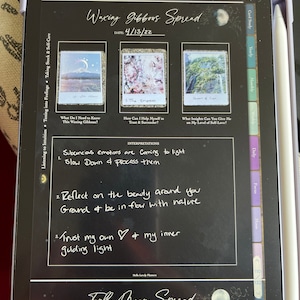 Waxing Gibbous Spread
DATE: 4/13/22
What Do I Need to Know
This Waxing Gibbous?
How Can I Help Myself to
Trust & Surrender?
What Insights Can You Give Me
on My Level of Self-Love?
INTERPRETATIONS
1. Subconscious emotions are coming to light
Slow Down & process them
2. Reflect on the beauty around you
Ground & be in flow with nature
3. Trust my own ♡ & my inner
guiding light
Full Moon Spread
Listening to Intuition
Tuning into Feelings
Taking Stock & Self-Care
Daily